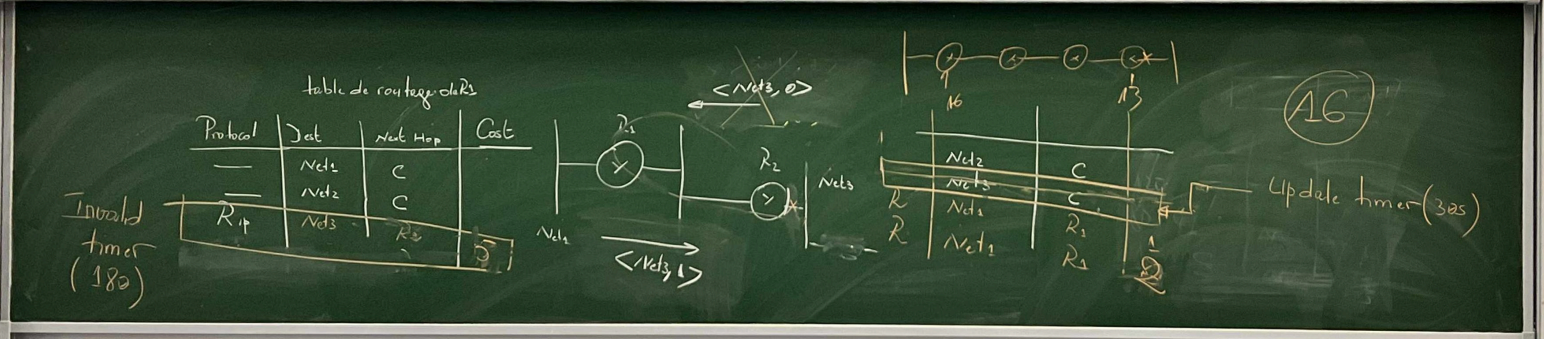 table de routage de R1
Protocol Dest Next Hop Cost
— Net1 C
— Net2 C
Rip Net3 R2 5
Invalid
timer
(180)
<Net3, 0>
R1
R2
Net3
Net2
<Net3, 1>
16
13
Net2 C
Net3 C
R Net1 R1 1
R Net1 R1 2
Update timer (30s)
A6